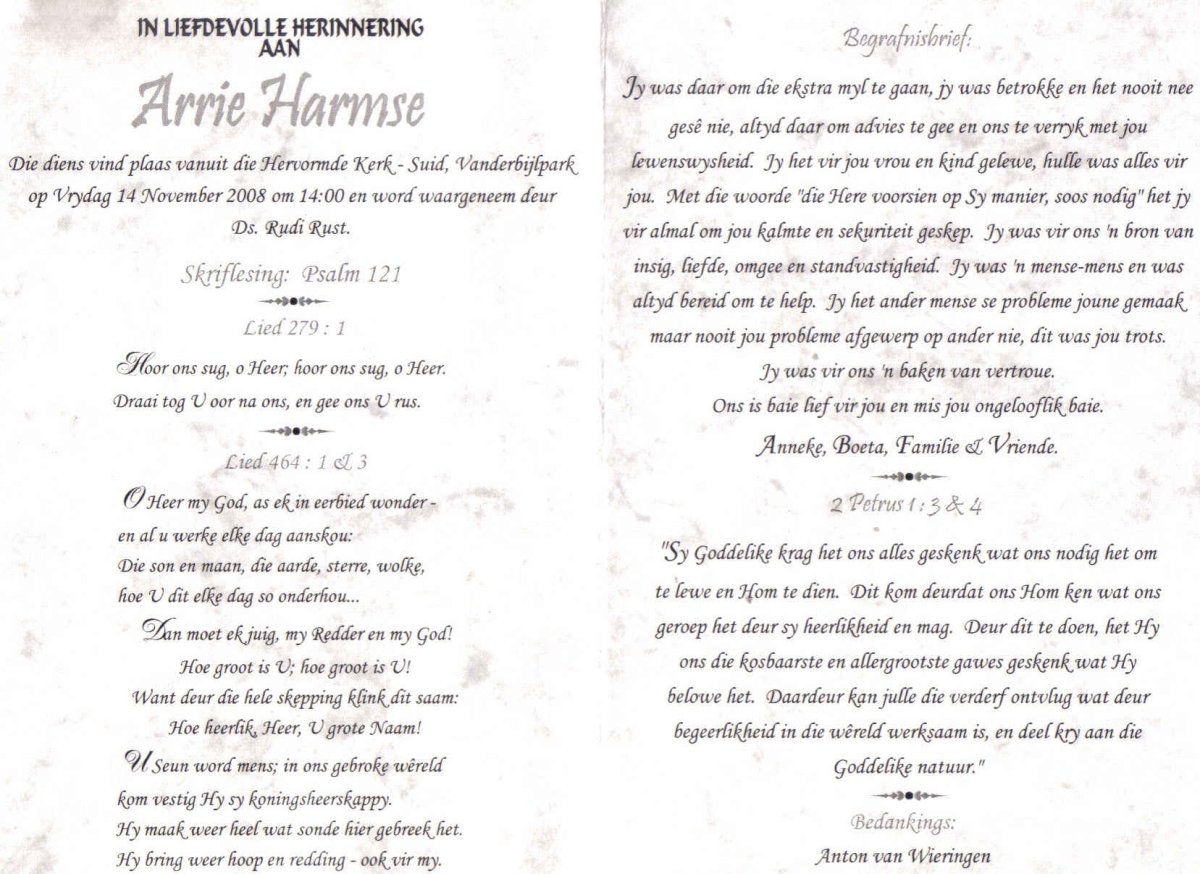 IN LIEFDEVOLLE HERINNERING
AAN
Arrie Harmse
Die diens vind plaas vanuit die Hervormde Kerk - Suid, Vanderbijlpark
op Vrydag 14 November 2008 om 14:00 en word waargeneem deur
Ds. Rudi Rust.
Skriflesing: Psalm 121
Lied 279 : 1
Hoor ons sug, o Heer; hoor ons sug, o Heer.
Draai tog U oor na ons, en gee ons U rus.
Lied 464 : 1 & 3
O Heer my God, as ek in eerbied wonder -
en al u werke elke dag aanskou:
Die son en maan, die aarde, sterre, wolke,
hoe U dit elke dag so onderhou...
Dan moet ek juig, my Redder en my God!
Hoe groot is U; hoe groot is U!
Want deur die hele skepping klink dit saam:
Hoe heerlik, Heer, U grote Naam!
U Seun word mens; in ons gebroke wêreld
kom vestig Hy sy koningsheerskappy.
Hy maak weer heel wat sonde hier gebreek het.
Hy bring weer hoop en redding - ook vir my.
Begrafnisbrief:
Jy was daar om die ekstra myl te gaan, jy was betrokke en het nooit nee
gesê nie, altyd daar om advies te gee en ons te verryk met jou
lewenswysheid. Jy het vir jou vrou en kind gelewe, hulle was alles vir
jou. Met die woorde "die Here voorsien op Sy manier, soos nodig" het jy
vir almal om jou kalmte en sekuriteit geskep. Jy was vir ons 'n bron van
insig, liefde, omgee en standvastigheid. Jy was 'n mense-mens en was
altyd bereid om te help. Jy het ander mense se probleme joune gemaak
maar nooit jou probleme afgewerp op ander nie, dit was jou trots.
Jy was vir ons 'n baken van vertroue.
Ons is baie lief vir jou en mis jou ongelooflik baie.
Anneke, Boeta, Familie & Vriende.
2 Petrus 1 : 3 & 4
"Sy Goddelike krag het ons alles geskenk wat ons nodig het om
te lewe en Hom te dien. Dit kom deurdat ons Hom ken wat ons
geroep het deur sy heerlikheid en mag. Deur dit te doen, het Hy
ons die kosbaarste en allergrootste gawes geskenk wat Hy
belowe het. Daardeur kan julle die verderf ontvlug wat deur
begeerlikheid in die wêreld werksaam is, en deel kry aan die
Goddelike natuur."
Bedankings:
Anton van Wieringen